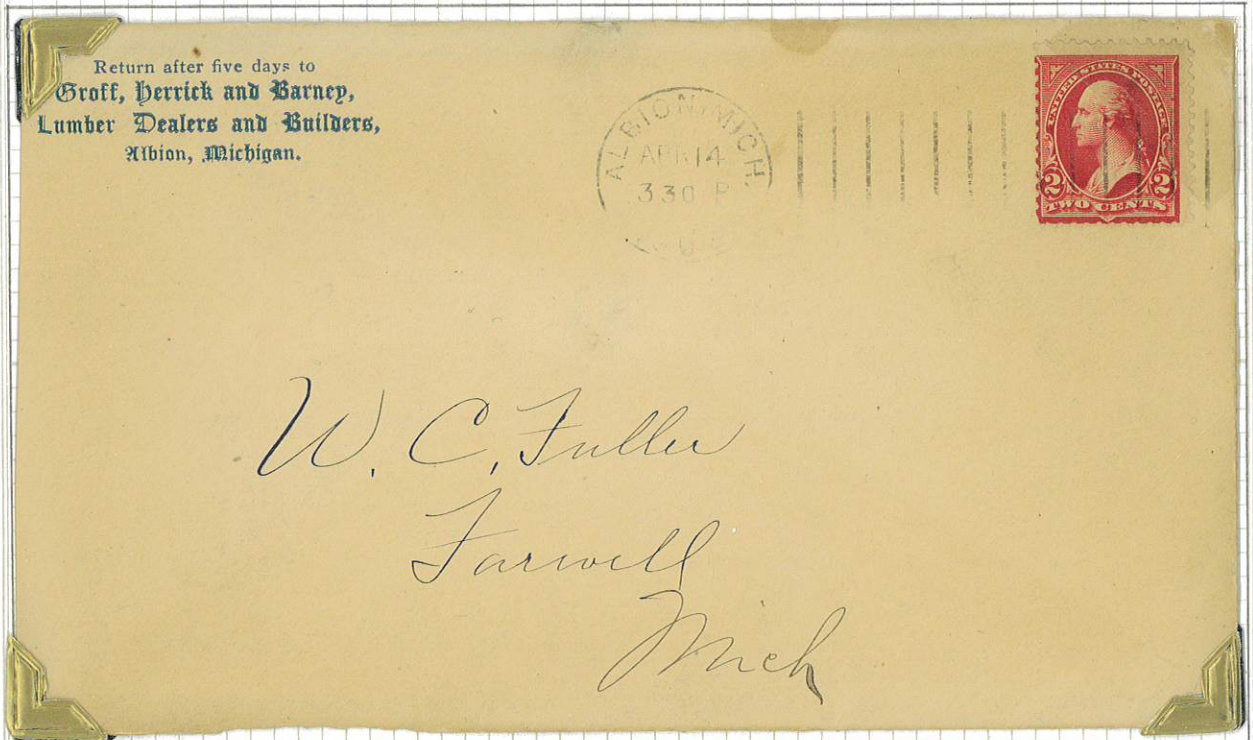 Return after five days to
Groff, Herrick and Barney,
Lumber Dealers and Builders,
Albion, Michigan.
ALBION, MICH.
APR 14
330 P
UNITED STATES POSTAGE
2 2
TWO CENTS
W. C. Fuller
Farwell
Mich